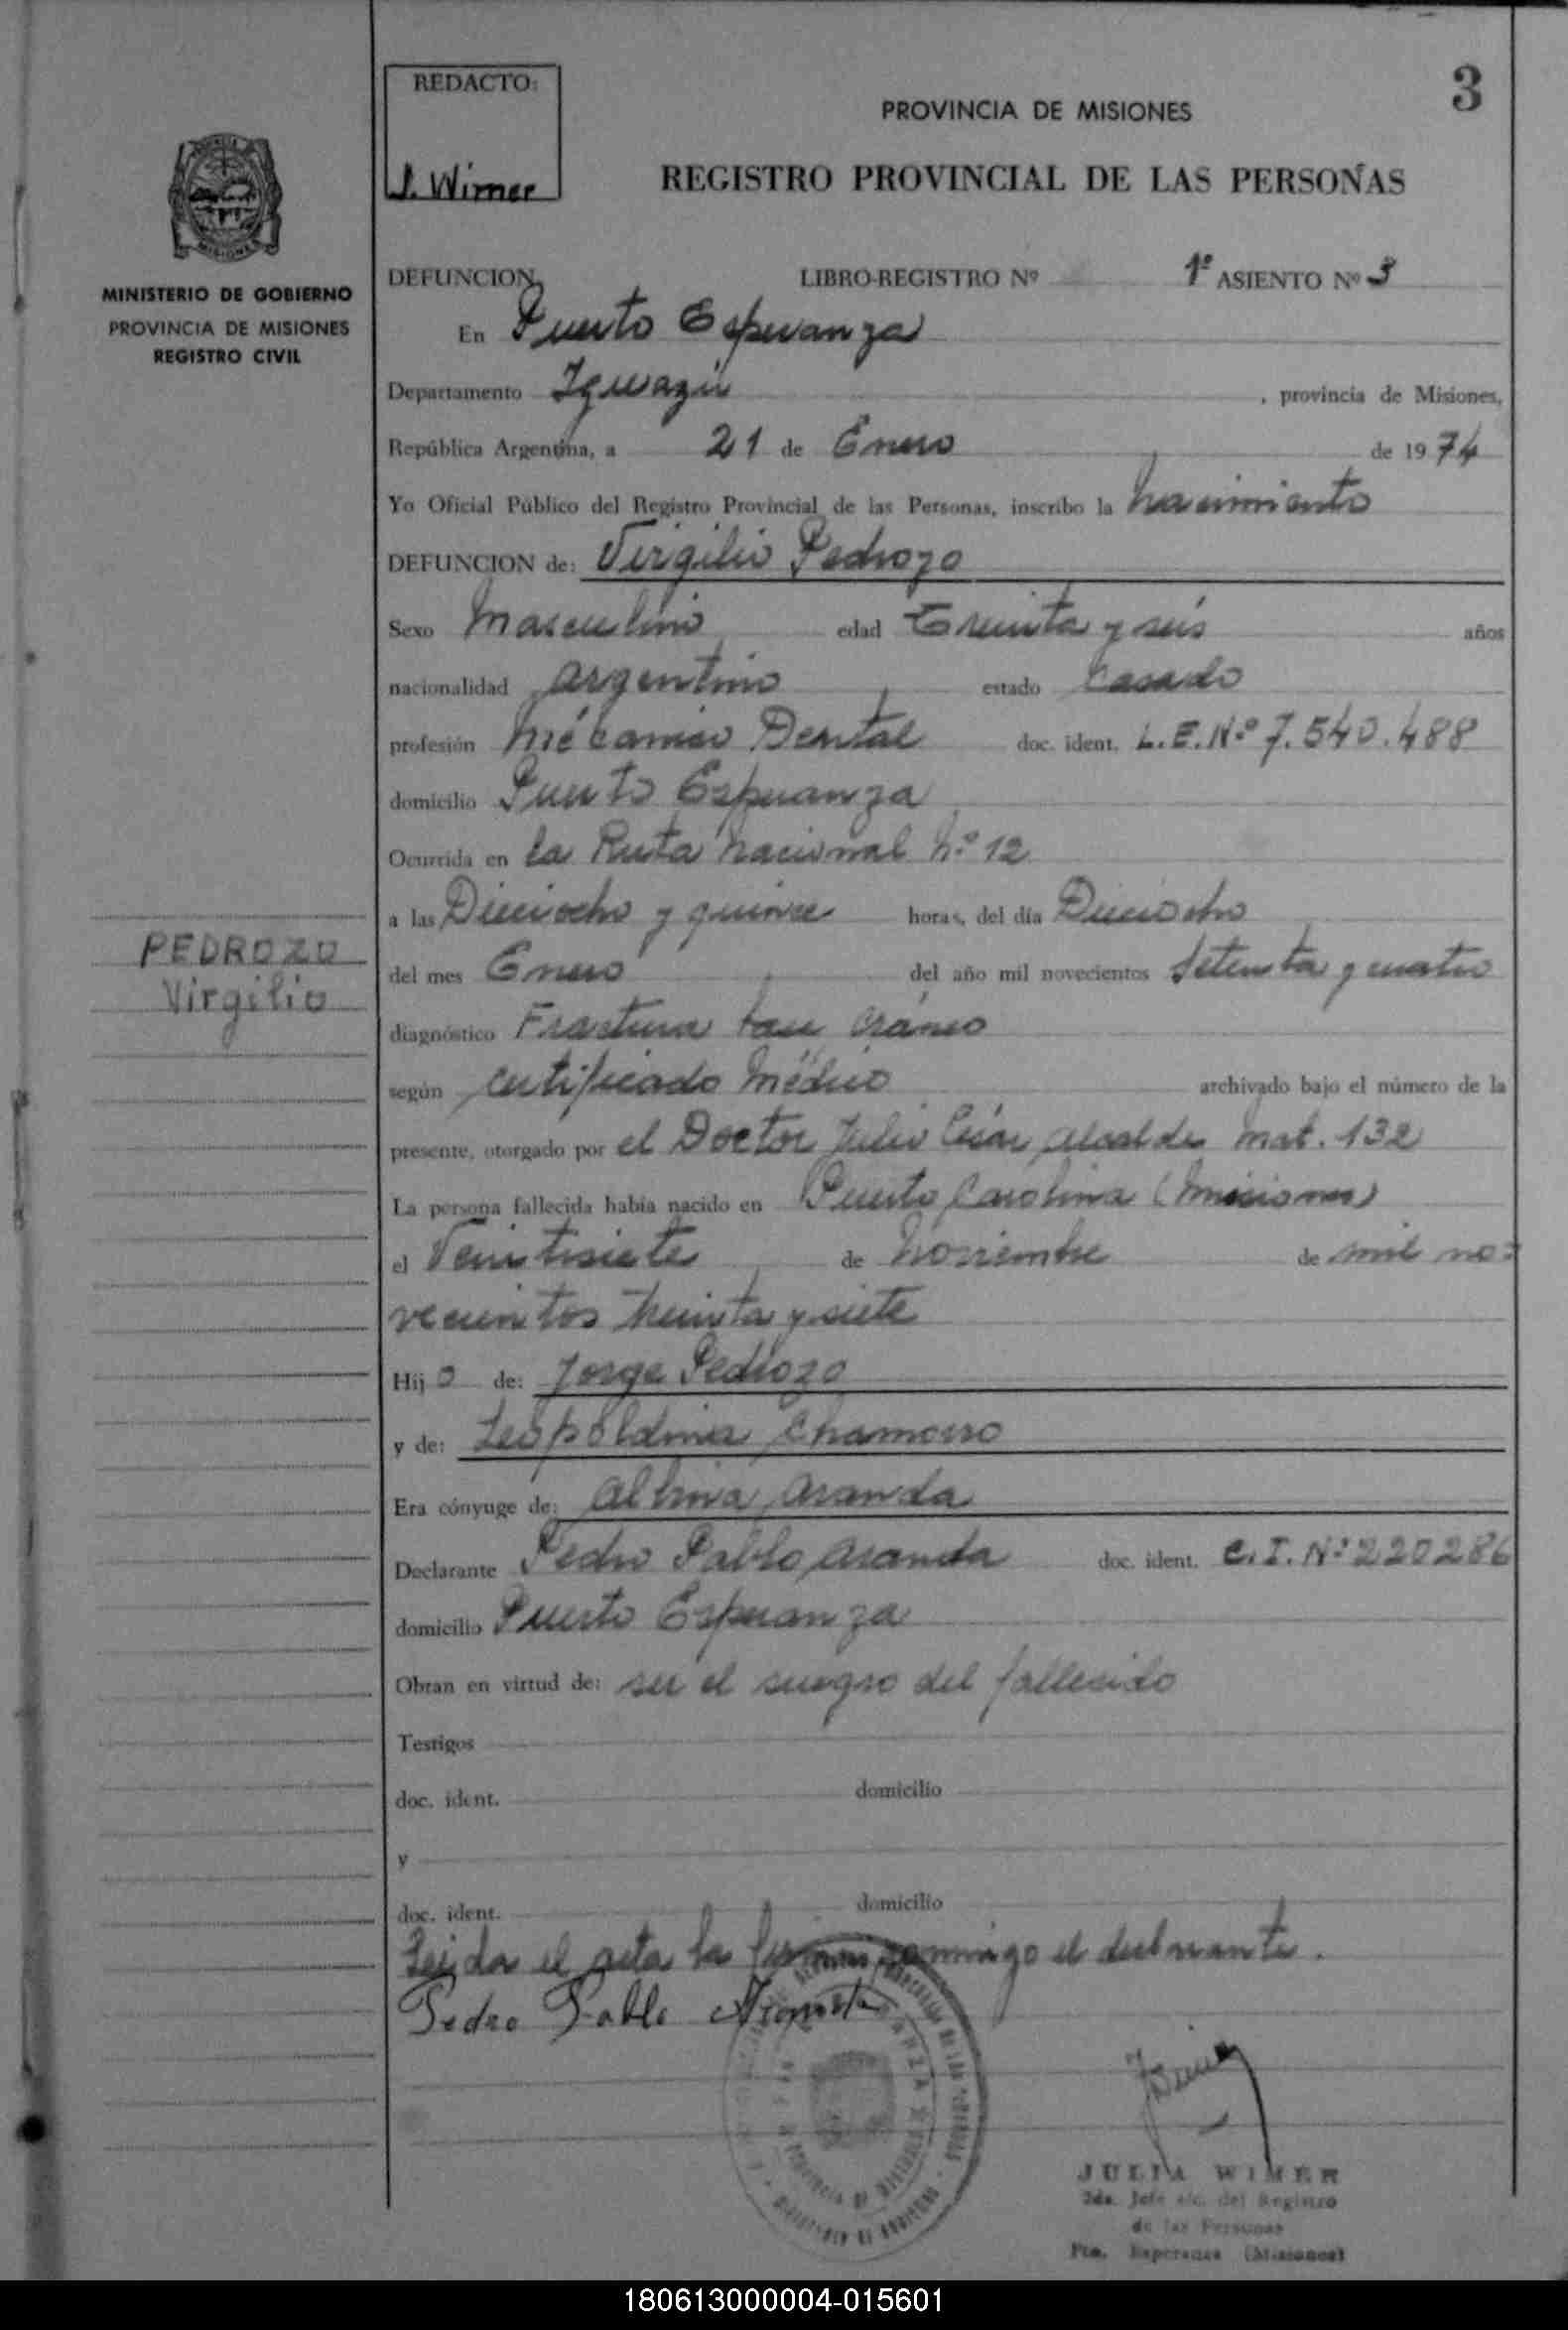 REDACTO:
J. Wimer
3
PROVINCIA DE MISIONES
REGISTRO PROVINCIAL DE LAS PERSONAS
MINISTERIO DE GOBIERNO
PROVINCIA DE MISIONES
REGISTRO CIVIL
DEFUNCION LIBRO-REGISTRO Nº 1º ASIENTO Nº 3
En Puerto Esperanza
Departamento Iguazú , provincia de Misiones,
República Argentina, a 21 de Enero de 1974
Yo Oficial Público del Registro Provincial de las Personas, inscribo la nacimiento
DEFUNCION de: Virgilio Pedrozo
Sexo Masculino edad Treinta y seis años
nacionalidad argentino estado Casado
profesión Mécanico Dental doc. ident. L.E.Nº 7.540.488
domicilio Puerto Esperanza
Ocurrida en la Ruta Nacional Nº 12
a las Dieciocho y quince horas, del día Dieciocho
PEDROZO
Virgilio
del mes Enero del año mil novecientos Setenta y cuatro
diagnóstico Fractura cráneo
según Certificado Médico archivado bajo el número de la
presente, otorgado por el Doctor Julio César Alcalde mat. 132
La persona fallecida había nacido en Puerto Carolina (Misiones)
el Veintisiete de Noviembre de mil no=
vecientos treinta y siete
Hijo de: Jorge Pedrozo
y de: Leopoldina Chamorro
Era cónyuge de: Albina Aranda
Declarante Pedro Pablo Aranda doc. ident. C.I. Nº 220286
domicilio Puerto Esperanza
Obran en virtud de: ser el suegro del fallecido
Testigos
doc. ident. domicilio
y
doc. ident. domicilio
Leida el acta la conmigo el declarante.
Pedro Pablo
JULIA WIMER
2da. Jefe a/c. del Registro
de las Personas
Pto. Esperanza (Misiones)
180613000004-015601